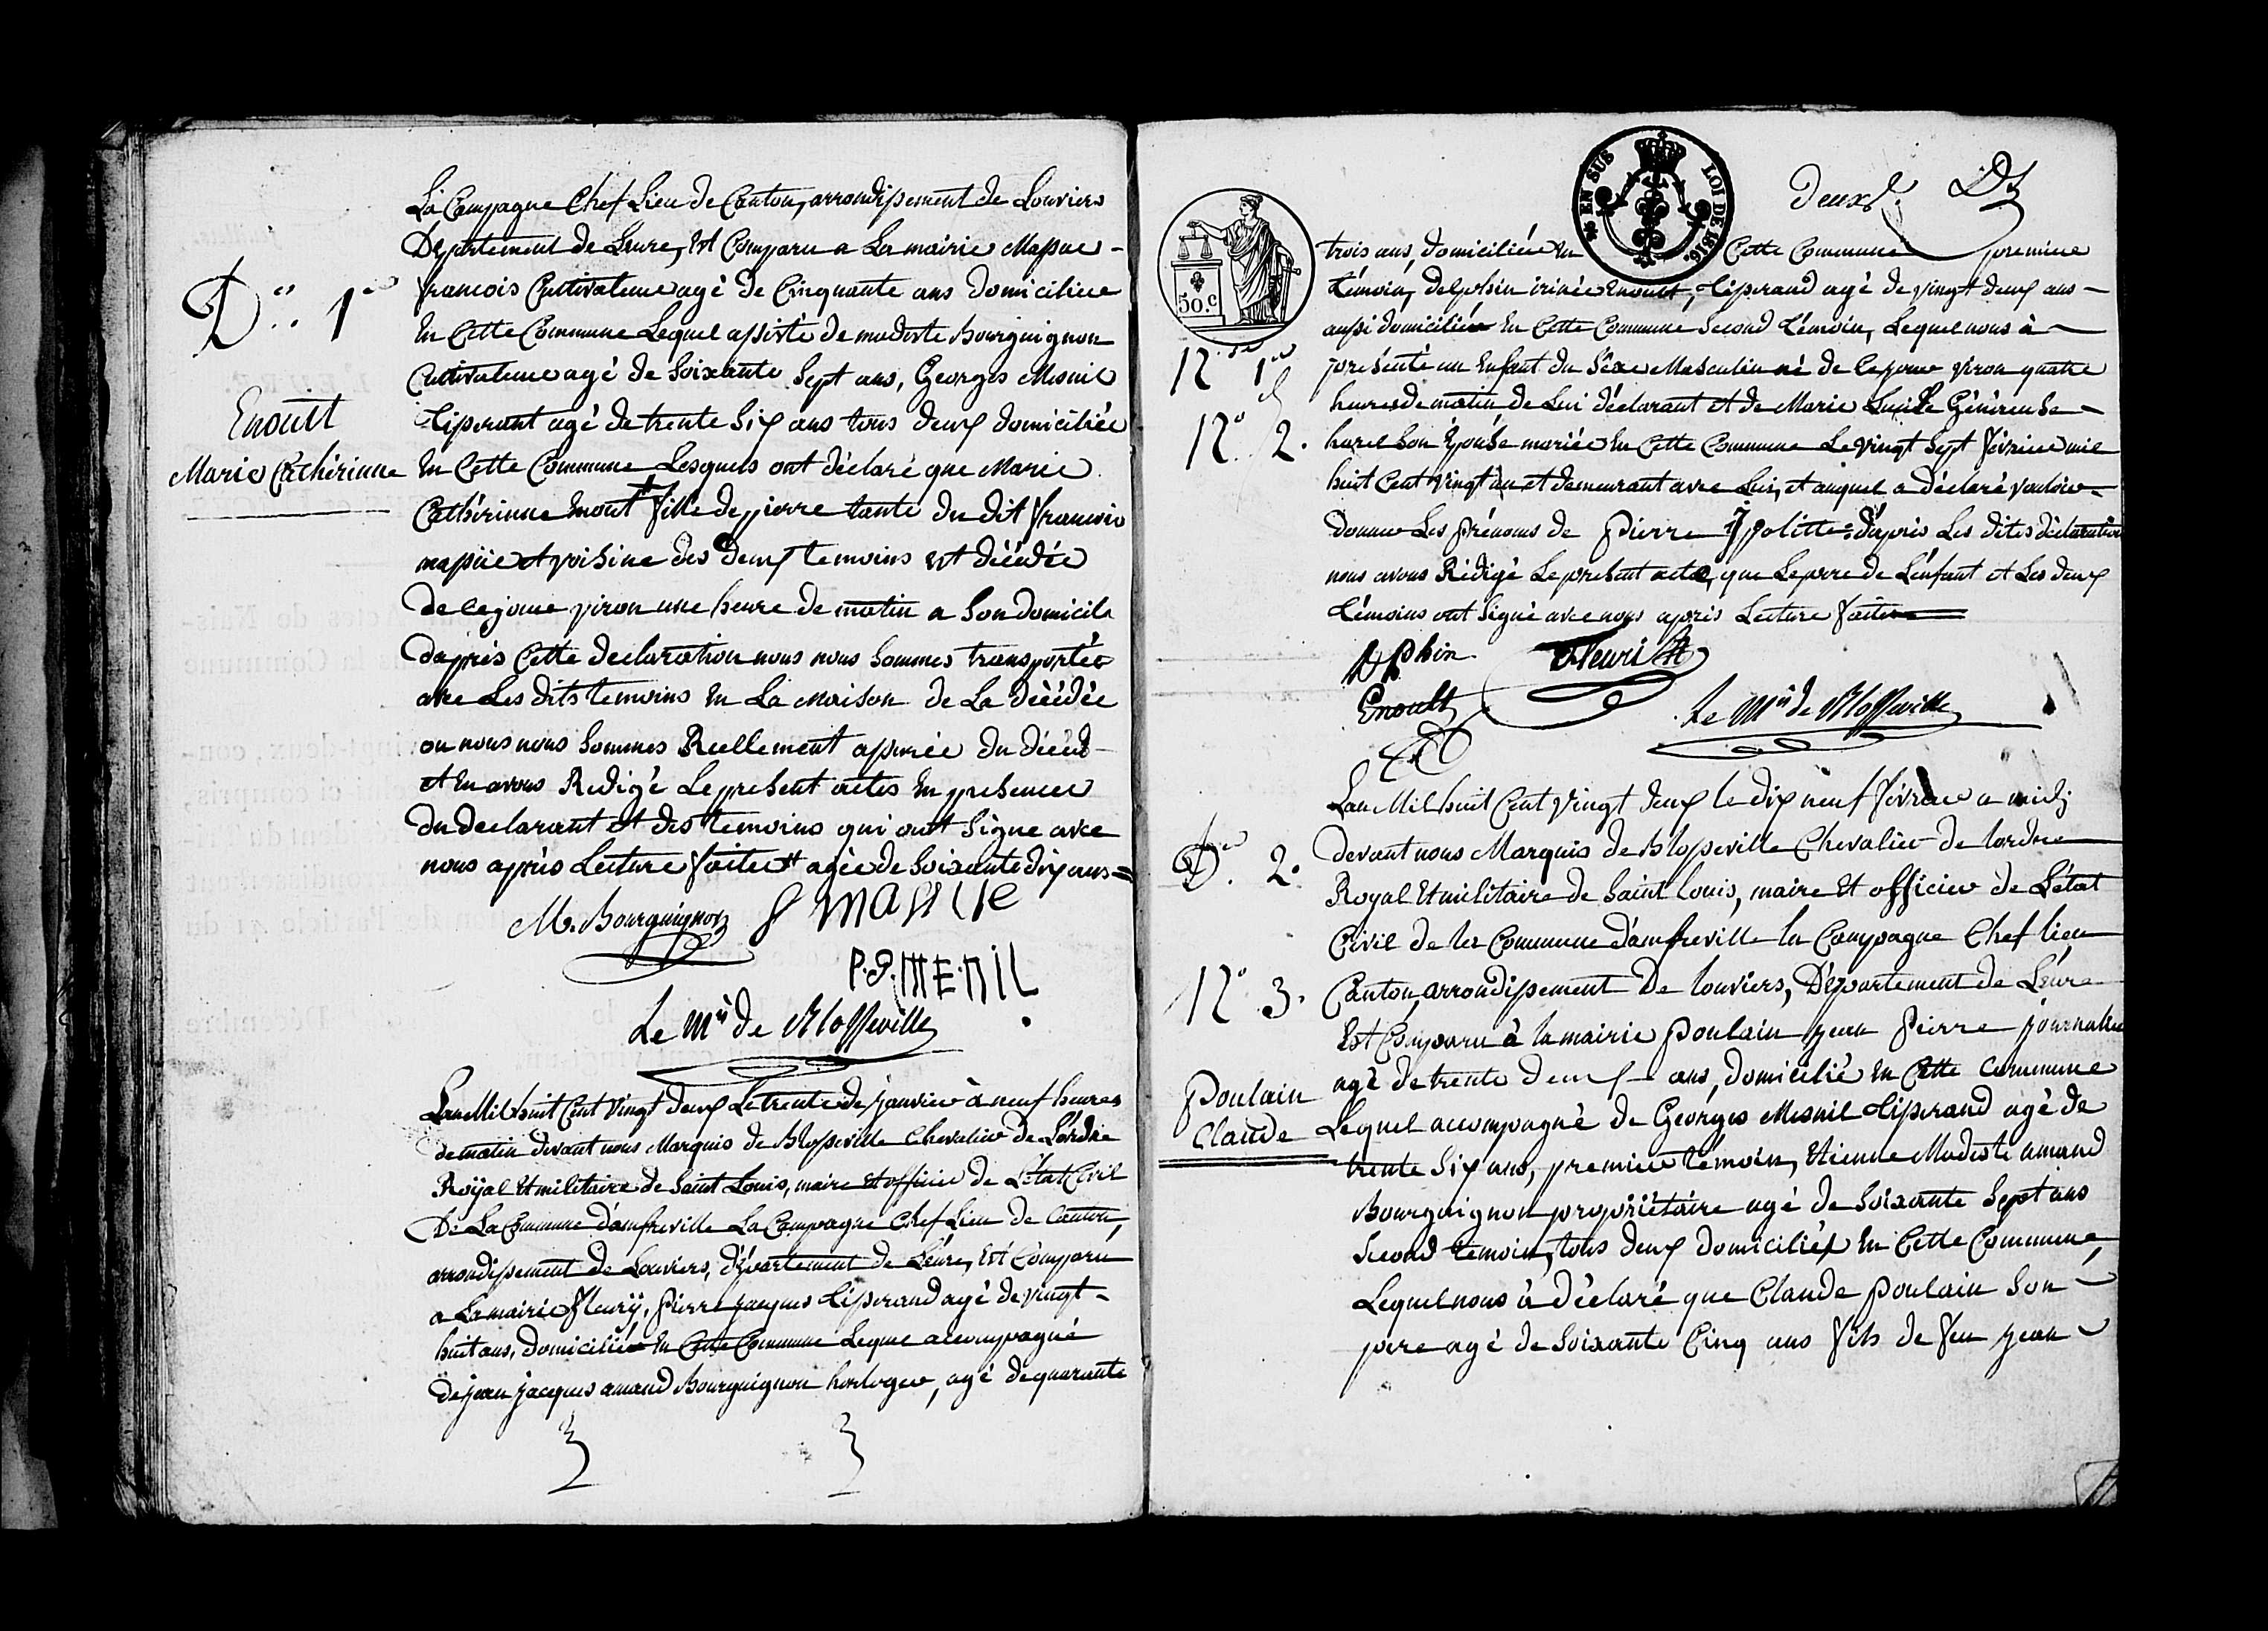 La Campagne Chef Lieu de Canton, arrondissement de Louviers
Département de Leure, Est Comparu a La mairie Massue -
D.ès 1er
francois Cultivateur agé de Cinquante ans domiciliée
En Cette Commune Lequel assisté de modeste Bourguignon
Cultivateur agé de Soixante Sept ans, Georges Mesnil
Enoult
Tisserant agé de trente Six ans tous deux domiciliée
Marie Catherinne
En Cette Commune Lesquels ont déclaré que Marie
Cathérinne Enoult fille de pierre tante du dit francois
massüe et voisine des deux temoins est décédée
de ce jour viron une heure de matin a Son domicile
dapprés Cette declaration nous nous Sommes transportée
avec Les dits temoins En La maison de La décédée
ou nous nous Sommes Reellement assurée du décéd
et En avons Redigé Le present actes En presence
du declarant et des temoins qui ont Signe avec
nous après Lecture faite # agée de Soixante dix ans =
M. Bourguignon f massue
P. G. MENIL
Le Mis de Blosseville
Lan Mil huit Cent Vingt deux Le trente de janvier à neuf heures
de matin devant nous Marquis de Blosseville Chevalier de L'ordre
Royal Et militaire de Saint Louis, maire Et officier de L'état Civil
De La Commune d'amfreville La Campagne Chef Lieu de Canton,
arrondissement de Louviers, département de Léure, Est Comparu
a La mairie fleury, pierre jacques tisserand agé de vingt -
huit ans, domicilié En Cette Commune Lequel accompagné
de jean jacques amand Bourguignon horloger, agé de quarante
25 EN SUS LOI DE 1816.
50.c
deux
trois ans, domiciliée En Cette Commune premiere
témoin, delphin irinée Enoult, tisserand agé de vingt deux ans -
aussi domiciliée En Cette Commune Second témoin, Lequel nous à
N. 1er
présenté un Enfant du Séxe Masculin né de ce jour viron quatre
heures de matin de Lui déclarant et de Marie Lucille Généreuse
N° 2.
hurel Son Epouse mariée En Cette Commune Le vingt Sept février mil
huit Cent vingt un et demeurant avec Lui, et auquel a déclaré vouloir
donner Les prénoms de pierre Ypolitte : d'après Les dites déclaration
nous avons Rédigé Le present acte, que Le père de L'enfant et Les deux
témoins ont Signé avec nous après Lecture faite
Delphin fleuri
Enoult
Le Mis de Blosseville
Lan Mil huit Cent Vingt deux le dix neuf février a midi
devant nous Marquis de Blosseville Chevalier de lordre
D. 2.
Royal Et militaire de Saint Louis, maire Et officier de L'état
Civil de la Commune d'amfreville la Campagne Chef lieu
N° 3.
Canton, arrondissement De louviers, Département de Léure
Est Comparu à la mairie poulain jean pierre journalier
poulain
agé de trente deux ans, domicilié En Cette Commune
Claude
Lequel accompagné de Georges Mesnil tisserand agé de
trente Six ans, premier témoin, Etienne Modeste amand
Bourguignon propriétaire agé de Soixante Sept ans
Second temoin, tous deux domiciliés En Cette Commune,
Lequel nous à déclaré que Claude poulain Son
pere agé de Soixante Cinq ans fils de feu jean